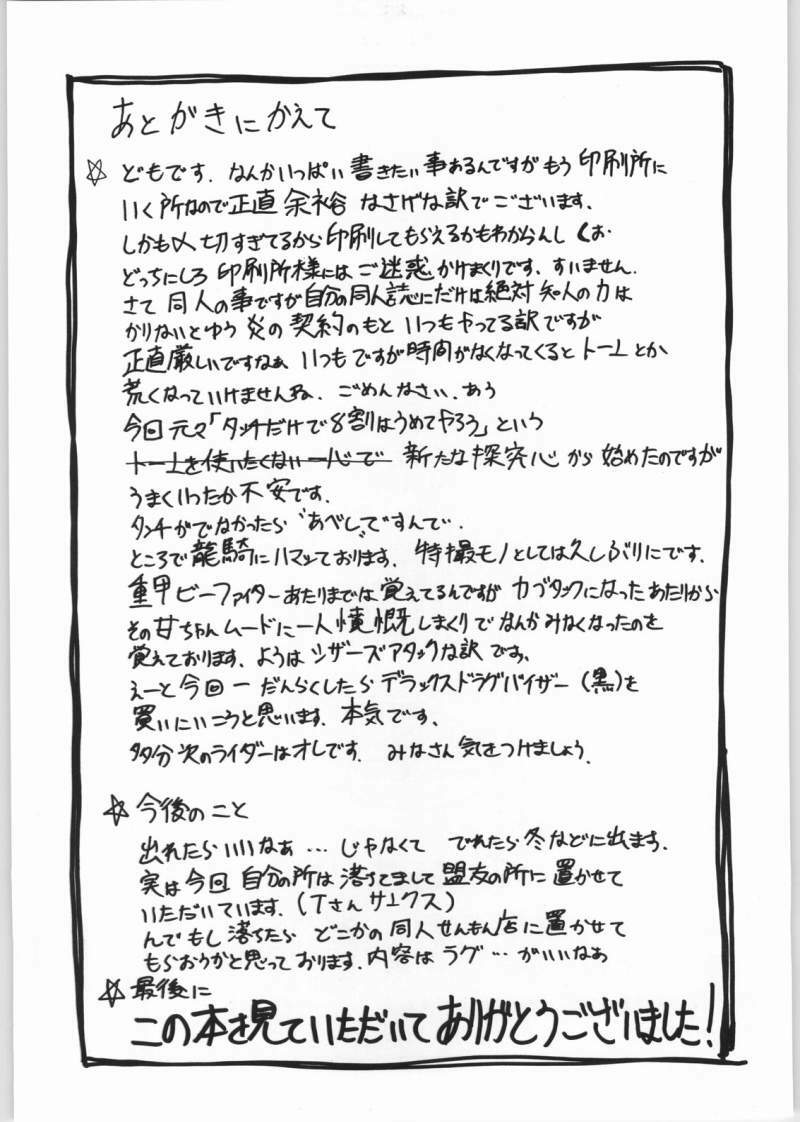 あとがきにかえて
☆ どもです. なんかいっぱい書きたい事あるんですがもう印刷所に
いく所なので正直余裕なさげな訳でございます.
しかも〆切すぎてるから印刷してもらえるかもわからんし くお.
どっちにしろ印刷所様にはご迷惑かけまくりです. すいません.
さて同人の事ですが自分の同人誌にだけは絶対知人の力は
かりないとゆう炎の契約のもといつもやってる訳ですが
正直厳しいですなぁ いつもですが時間がなくなってくるとトーンとか
荒くなっていけませんね. ごめんなさい. あぅ
今回元々「タッチだけで8割はうめてやろう」という
トーンを使いたくない一心で 新たな探究心から始めたのですが
うまくいったか不安です.
タッチがでなかったら“あべし”ですんで.
ところで龍騎にハマッております. 特撮モノとしては久しぶりにです.
重甲ビーファイターあたりまでは覚えてるんですがカブタックになったあたりから
その女ちゃんムードに一人憤慨しまくりでなんかみなくなったのを
覚えております. ようはシザーズアタックな訳ですよ.
えーと今回一だんらくしたらデラックスドラグバイザー(黒)を
買いにいこうと思います. 本気です.
多分次のライダーはオレです. みなさん気をつけましょう.
☆ 今後のこと
出れたらいいなぁ… じゃなくて でれたら冬などに出ます.
実は今回自分の所は落ちてまして盟友の所に置かせて
いただいています. (Tさんサンクス)
んでもし落ちたら どこかの同人せんもん店に置かせて
もらおうかと思っております. 内容はラグ…がいいなぁ
☆ 最後に
この本を見ていただいてありがとうございました!